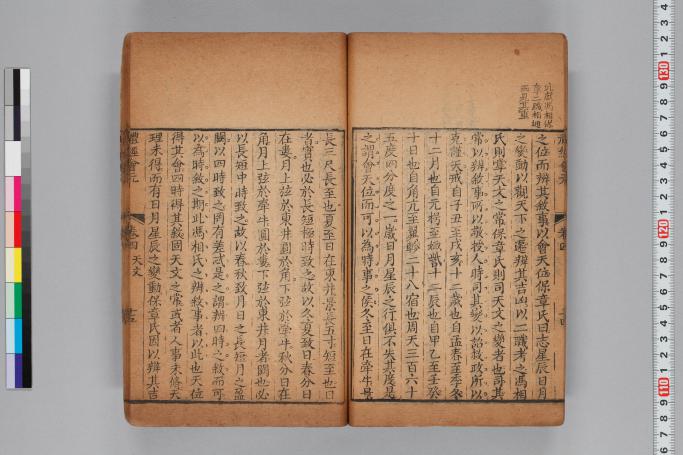 之位而辨其敘事以會天位保章氏曰志星辰日月
之變動以觀天下之遷辨其吉凶以二職考之馮相
氏則專天文之常保章氏則司天文之變者也司其
常以辨敘事所以敬授人時司其變以詔救政所以
克謹天戒自子丑至戌亥十二歲也自孟春至季冬
十二月也自元枵至娵訾十二辰也自甲乙至壬癸
十日也自角亢至翼軫二十八宿也周天三百六十
五度四分度之一歲日月星辰之行俱不失其度是
之謂會天位而可以為時事之候冬至日在牽牛景
長三尺長至也夏至日在東井景長五寸短至也曰
者實也必於長短極時致之故以冬夏致日春分日
在婁月上弦於東井圓於角下弦於牽牛秋分日在
角月上弦於牽牛圓於婁下弦於東井月者闕也必
以長短中時致之故以春秋致月日之長短月之盈
闕以四時致之罔有差忒是之謂辨四時之敘而可
以為時敘之期此馮相氏之辨敘事者以此也天位
得其會四時得其敘固天文之常或者人事未脩天
理未得而有日月星辰之變動保章氏因以辨其吉
禮經會元
卷四 天文